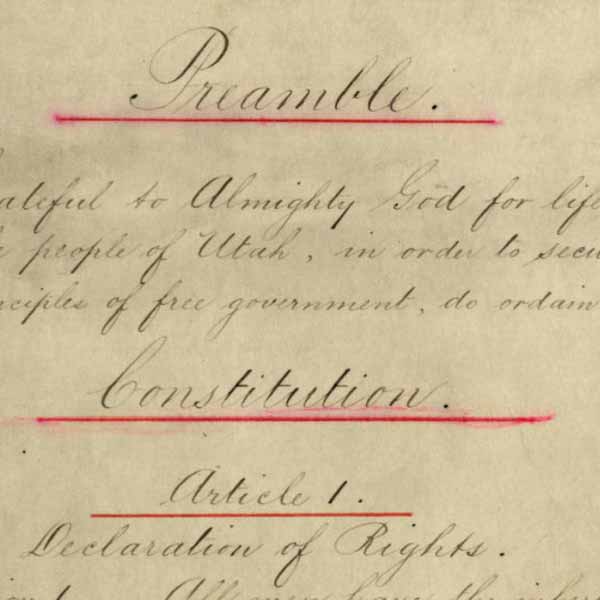 Preamble.
ateful to Almighty God for life
people of Utah, in order to secu
nciples of free government, do ordain
Constitution.
Article 1.
Declaration of Rights.
All men have the inher